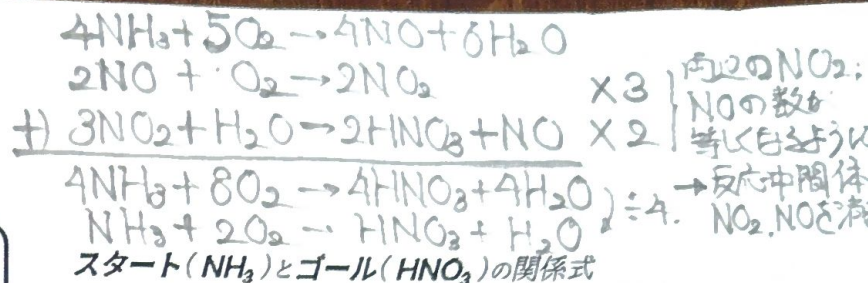 4NH₃+5O₂→4NO+6H₂O
2NO + O₂→2NO₂ ×3
+) 3NO₂+H₂O→2HNO₃+NO ×2
両辺のNO₂,
NOの数が
等しくなるように
4NH₃+8O₂→4HNO₃+4H₂O
NH₃+2O₂→HNO₃+H₂O
÷4.
→反応中間体
NO₂,NOを消
スタート(NH₃)とゴール(HNO₃)の関係式